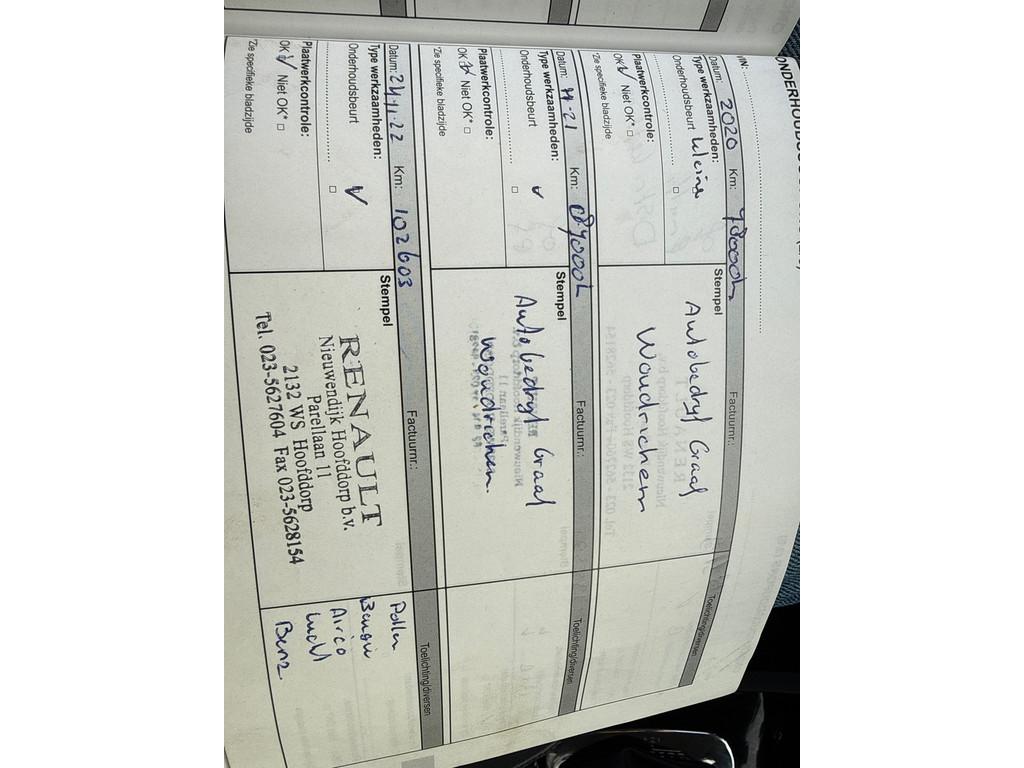 ONDERHOUDS
Datum: 2020 Km: 78000 Factuurnr.:
Type werkzaamheden: Stempel Toelichting/diversen
Onderhoudsbeurt kleine
Plaatwerkcontrole:
OK Niet OK*
*Zie specifieke bladzijde
Autobedryf Graaf
Woudrichem
Datum: 21 Km: Factuurnr.:
Type werkzaamheden: Stempel Toelichting/diversen
Onderhoudsbeurt
Plaatwerkcontrole:
OK Niet OK*
*Zie specifieke bladzijde
Autobedryf Graaf
Woudrichem.
Datum: 24.11.22 Km: 102603 Factuurnr.:
Type werkzaamheden: Stempel Toelichting/diversen
Onderhoudsbeurt
Plaatwerkcontrole:
OK Niet OK*
*Zie specifieke bladzijde
RENAULT
Nieuwendijk Hoofddorp b.v.
Parellaan 11
2132 WS Hoofddorp
Tel. 023-5627604 Fax 023-5628154
Pollen
Airco
Lucht
Benz